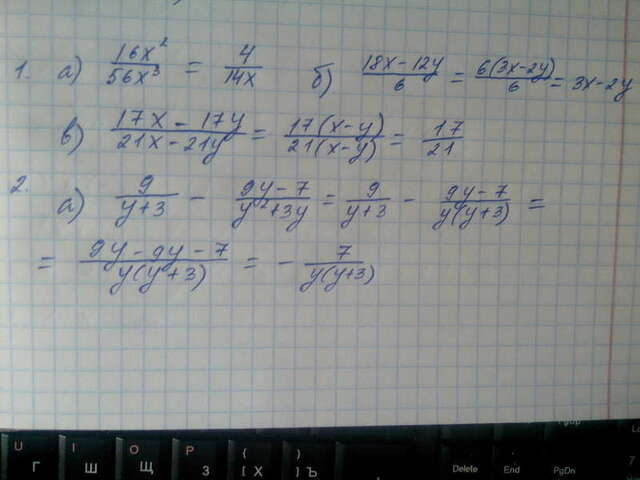 1. а) 16x²/56x³ = 4/14x б) 18x-12y/6 = 6(3x-2y)/6 = 3x-2y
в) 17x-17y/21x-21y = 17(x-y)/21(x-y) = 17/21
2. а) 9/y+3 - 9y-7/y²+3y = 9/y+3 - 9y-7/y(y+3) =
= 9y-9y-7/y(y+3) = - 7/y(y+3)
U I O P { }
Г Ш Щ З [ Х ] Ъ Delete End PgDn